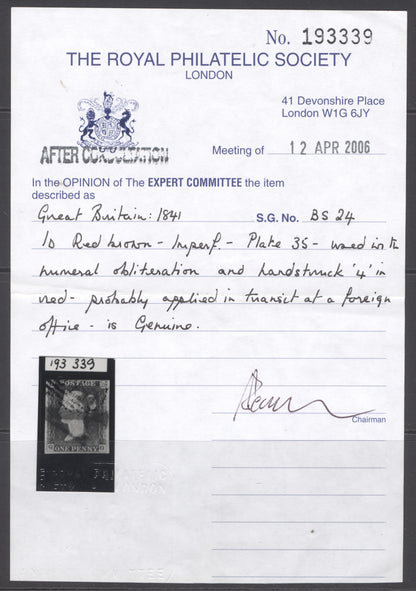 No. 193339
THE ROYAL PHILATELIC SOCIETY
LONDON
41 Devonshire Place
London W1G 6JY
AFTER CONSULTATION
Meeting of 12 APR 2006
In the OPINION of The EXPERT COMMITTEE the item
described as
Great Britain: 1841 S.G. No. BS 24
1D Red brown - Imperf. - Plate 35 - used in
numeral obliteration and handstruck '4' in
red - probably applied in transit at a foreign
office - is Genuine.
193 339
POSTAGE
ONE PENNY
Chairman